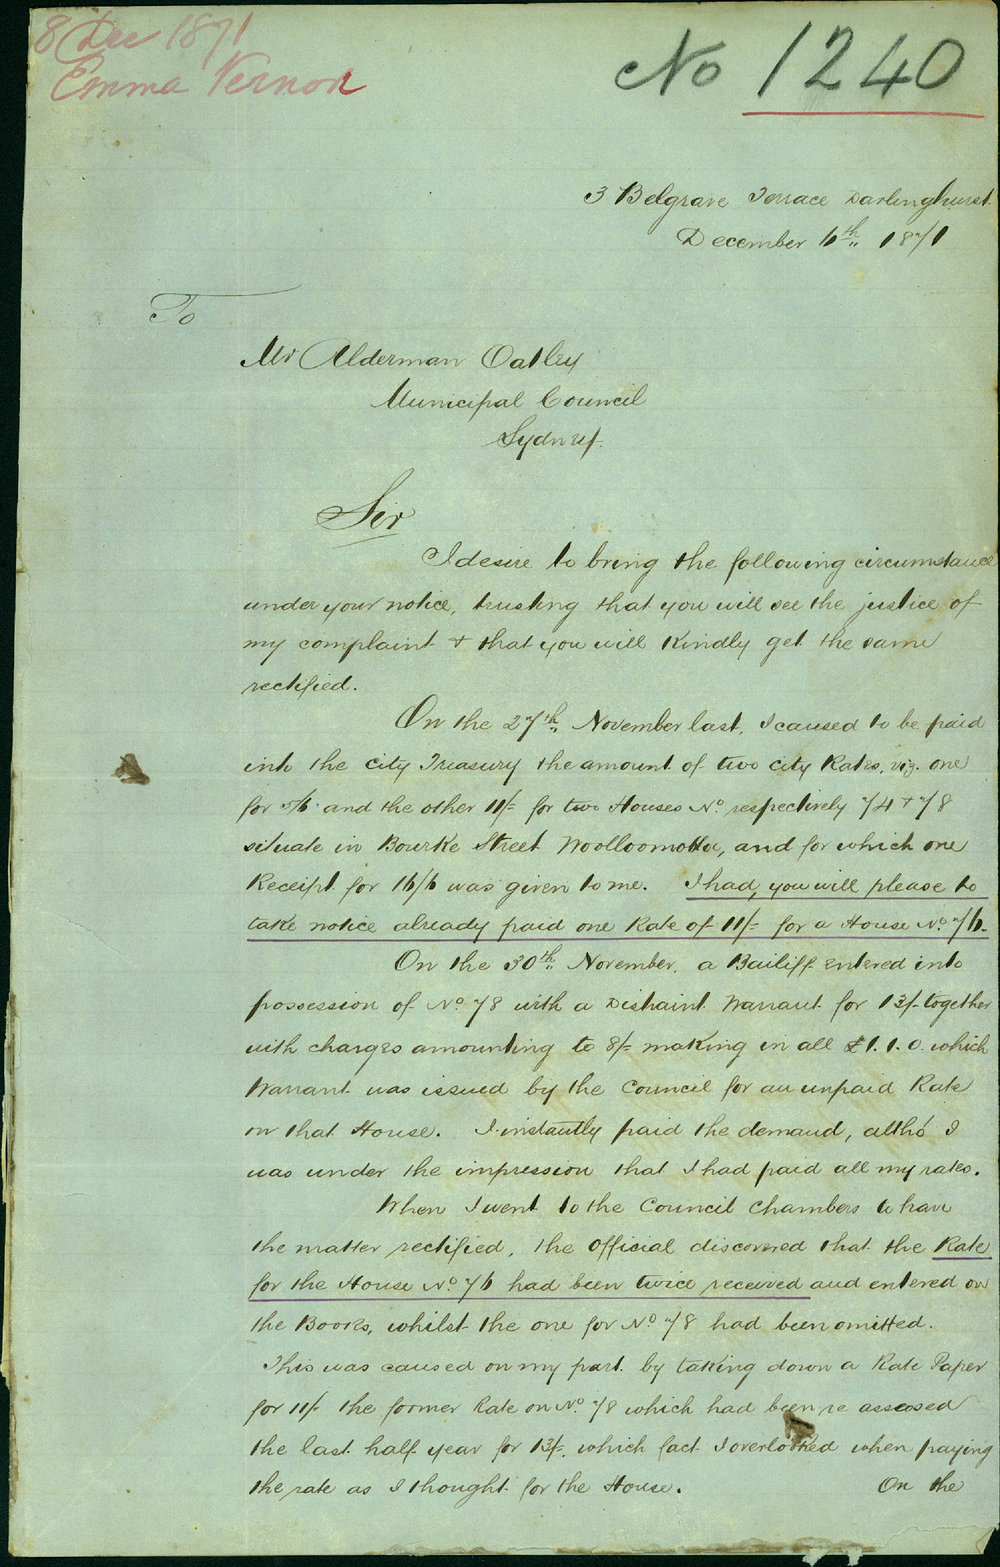 8 Dec 1871
Emma Vernon
No 1240
3 Belgrave Terrace Darlinghurst
December 6th 1871
To
Mr Alderman Oatley
Municipal Council
Sydney
Sir
I desire to bring the following circumstance
under your notice, trusting that you will see the justice of
my complaint & that you will kindly get the same
rectified.
On the 27th November last, I caused to be paid
into the city Treasury the amount of two city Rates, viz. one
for 5/6 and the other 11/- for two Houses No. respectively 74 & 78
situate in Bourke Street Woolloomolloo, and for which one
Receipt for 16/6 was given to me. I had, you will please to
take notice already paid one Rate of 11/- for a House No. 76.
On the 30th November, a Bailiff entered into
possession of No 78 with a Distraint Warrant for 13/- together
with charges amounting to 8/- making in all £1.1.0. which
Warrant was issued by the Council for an unpaid Rate
on that House. I instantly paid the demand, altho' I
was under the impression that I had paid all my rates.
When I went to the Council Chambers to have
the matter rectified, the official discovered that the Rate
for the House No. 76 had been twice received and entered on
the Books, whilst the one for No 78 had been omitted.
This was caused on my part by taking down a Rate Paper
for 11/- the former Rate on No. 78 which had been re assessed
the last half year for 13/-, which fact I overlooked when paying
the rate as I thought for the House. On the